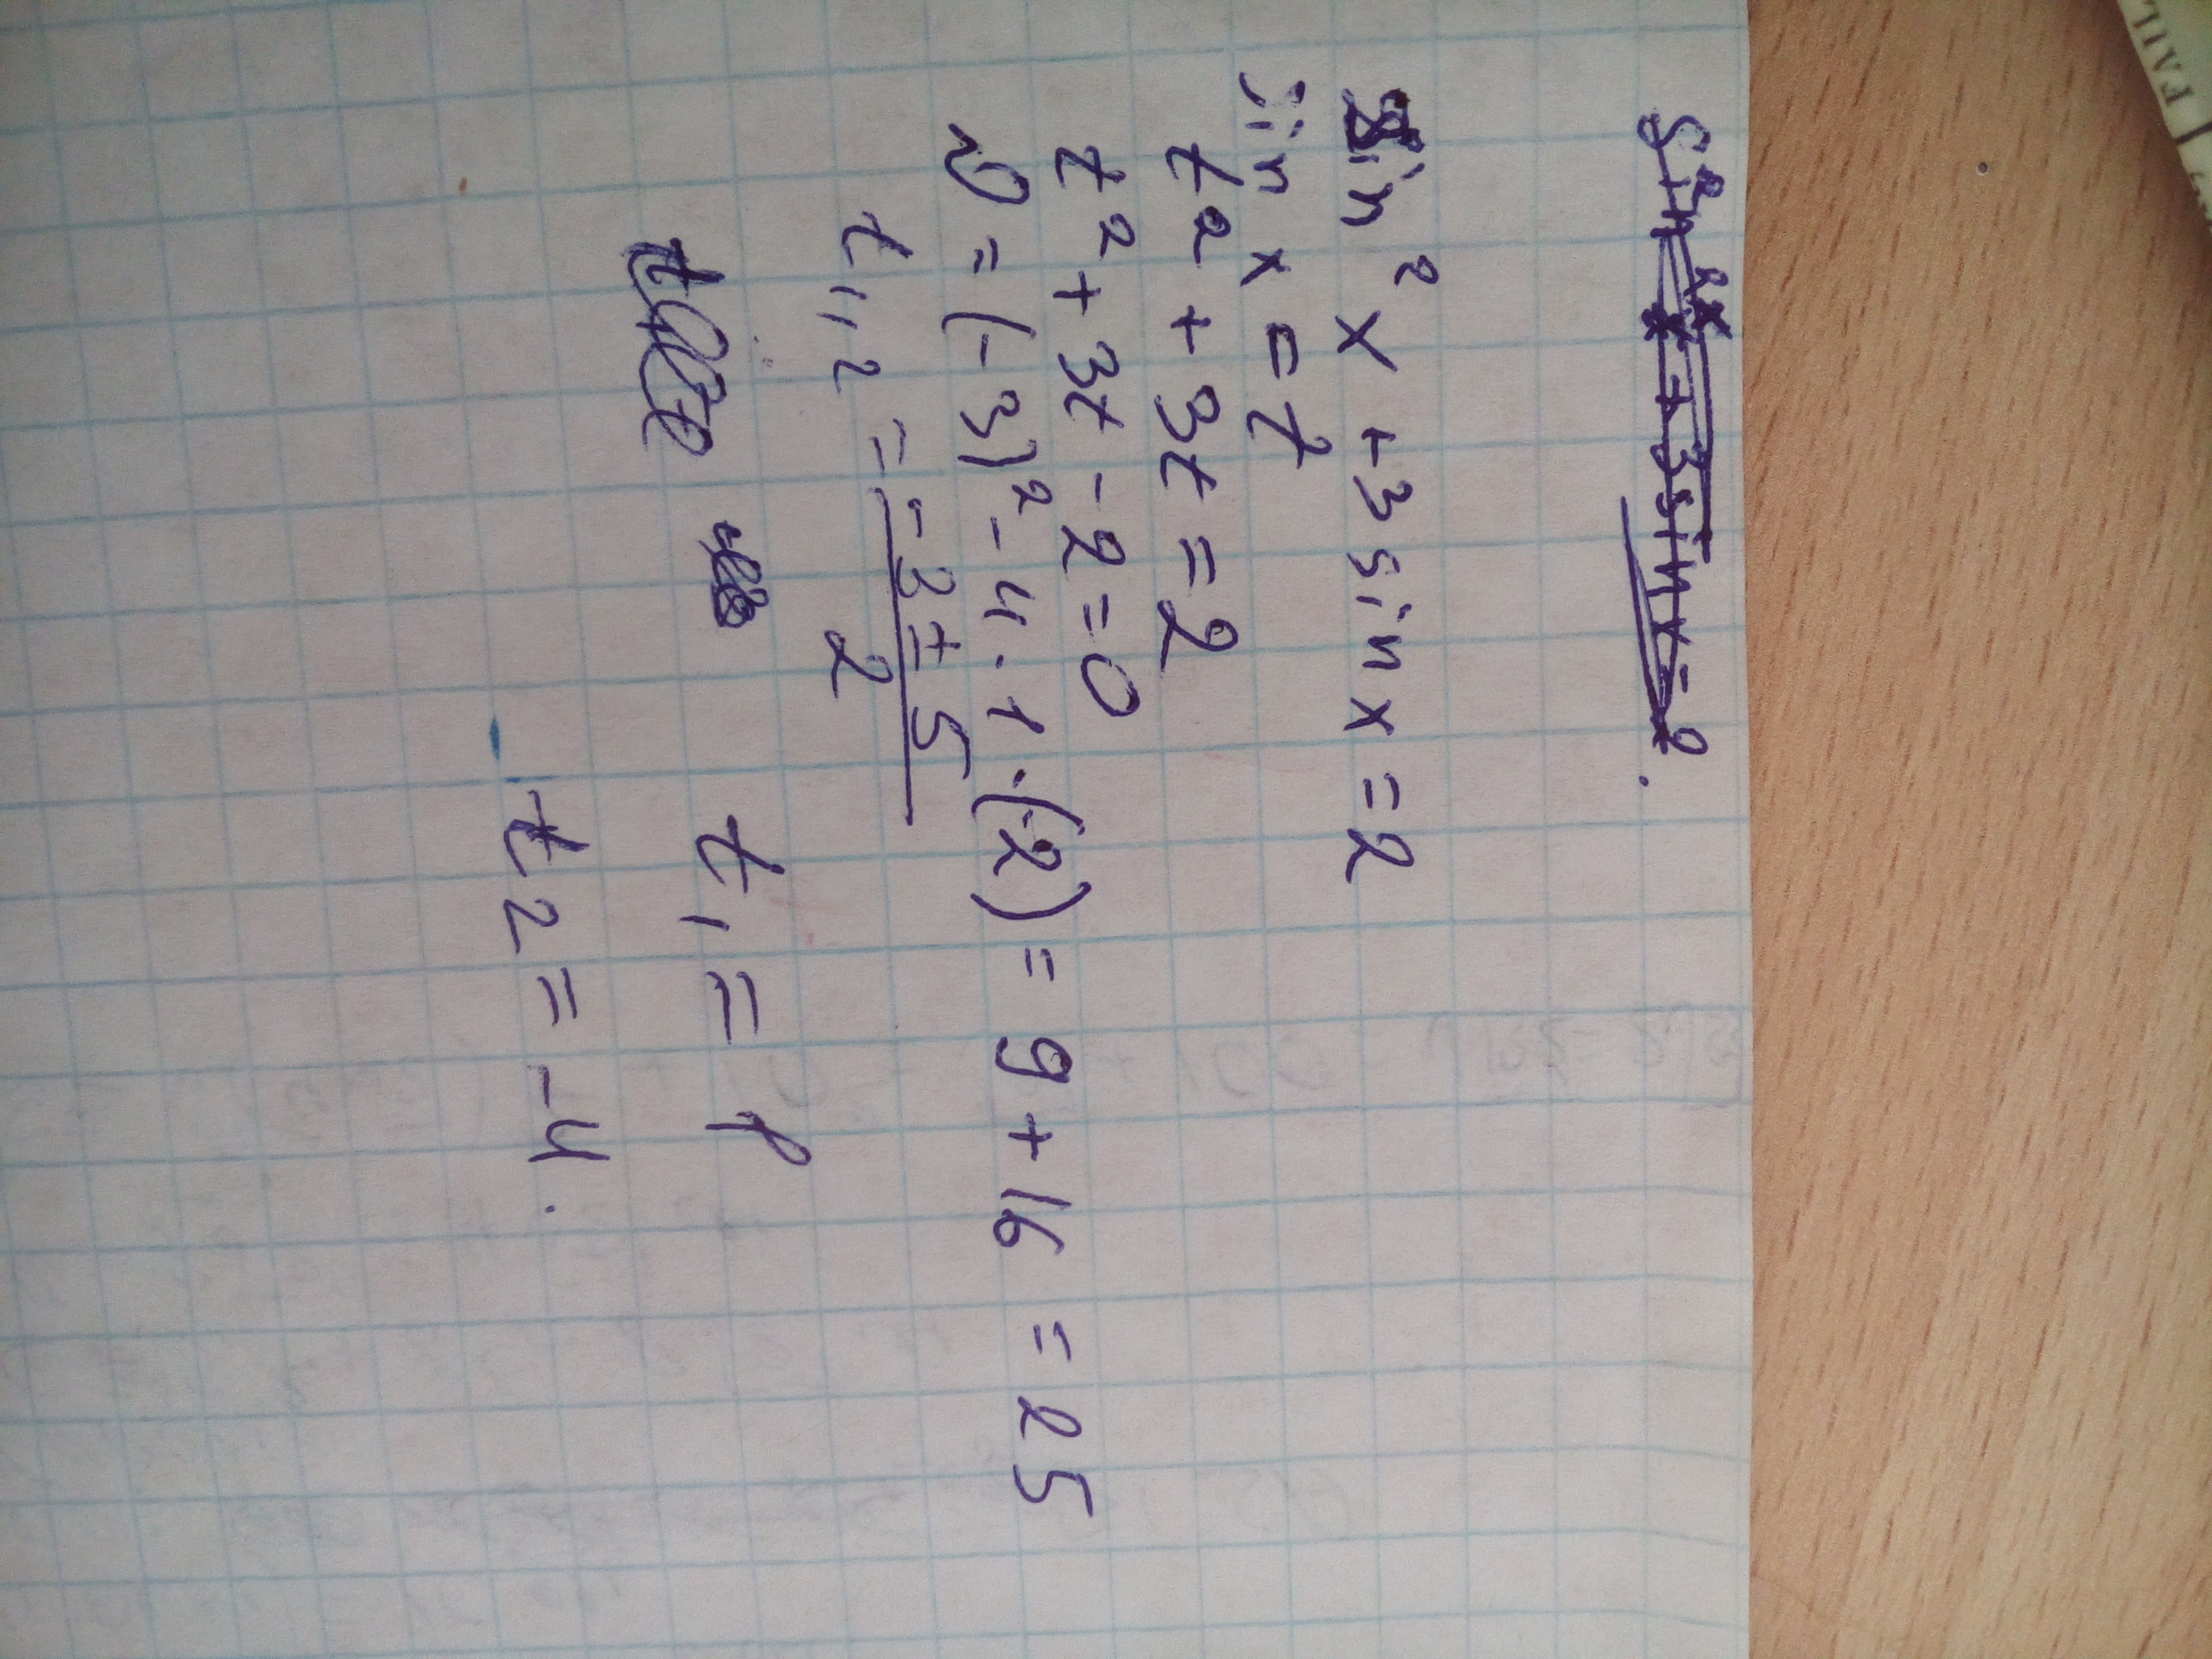 sin² x + 3 sin x = 2
sin x = t
t² + 3t = 2
t² + 3t - 2 = 0
D = (-3)² - 4 · 1 · (-2) = 9 + 16 = 25
t1,2 = (-3 ± 5) / 2
t1 = 1
t2 = -4.
FAIL